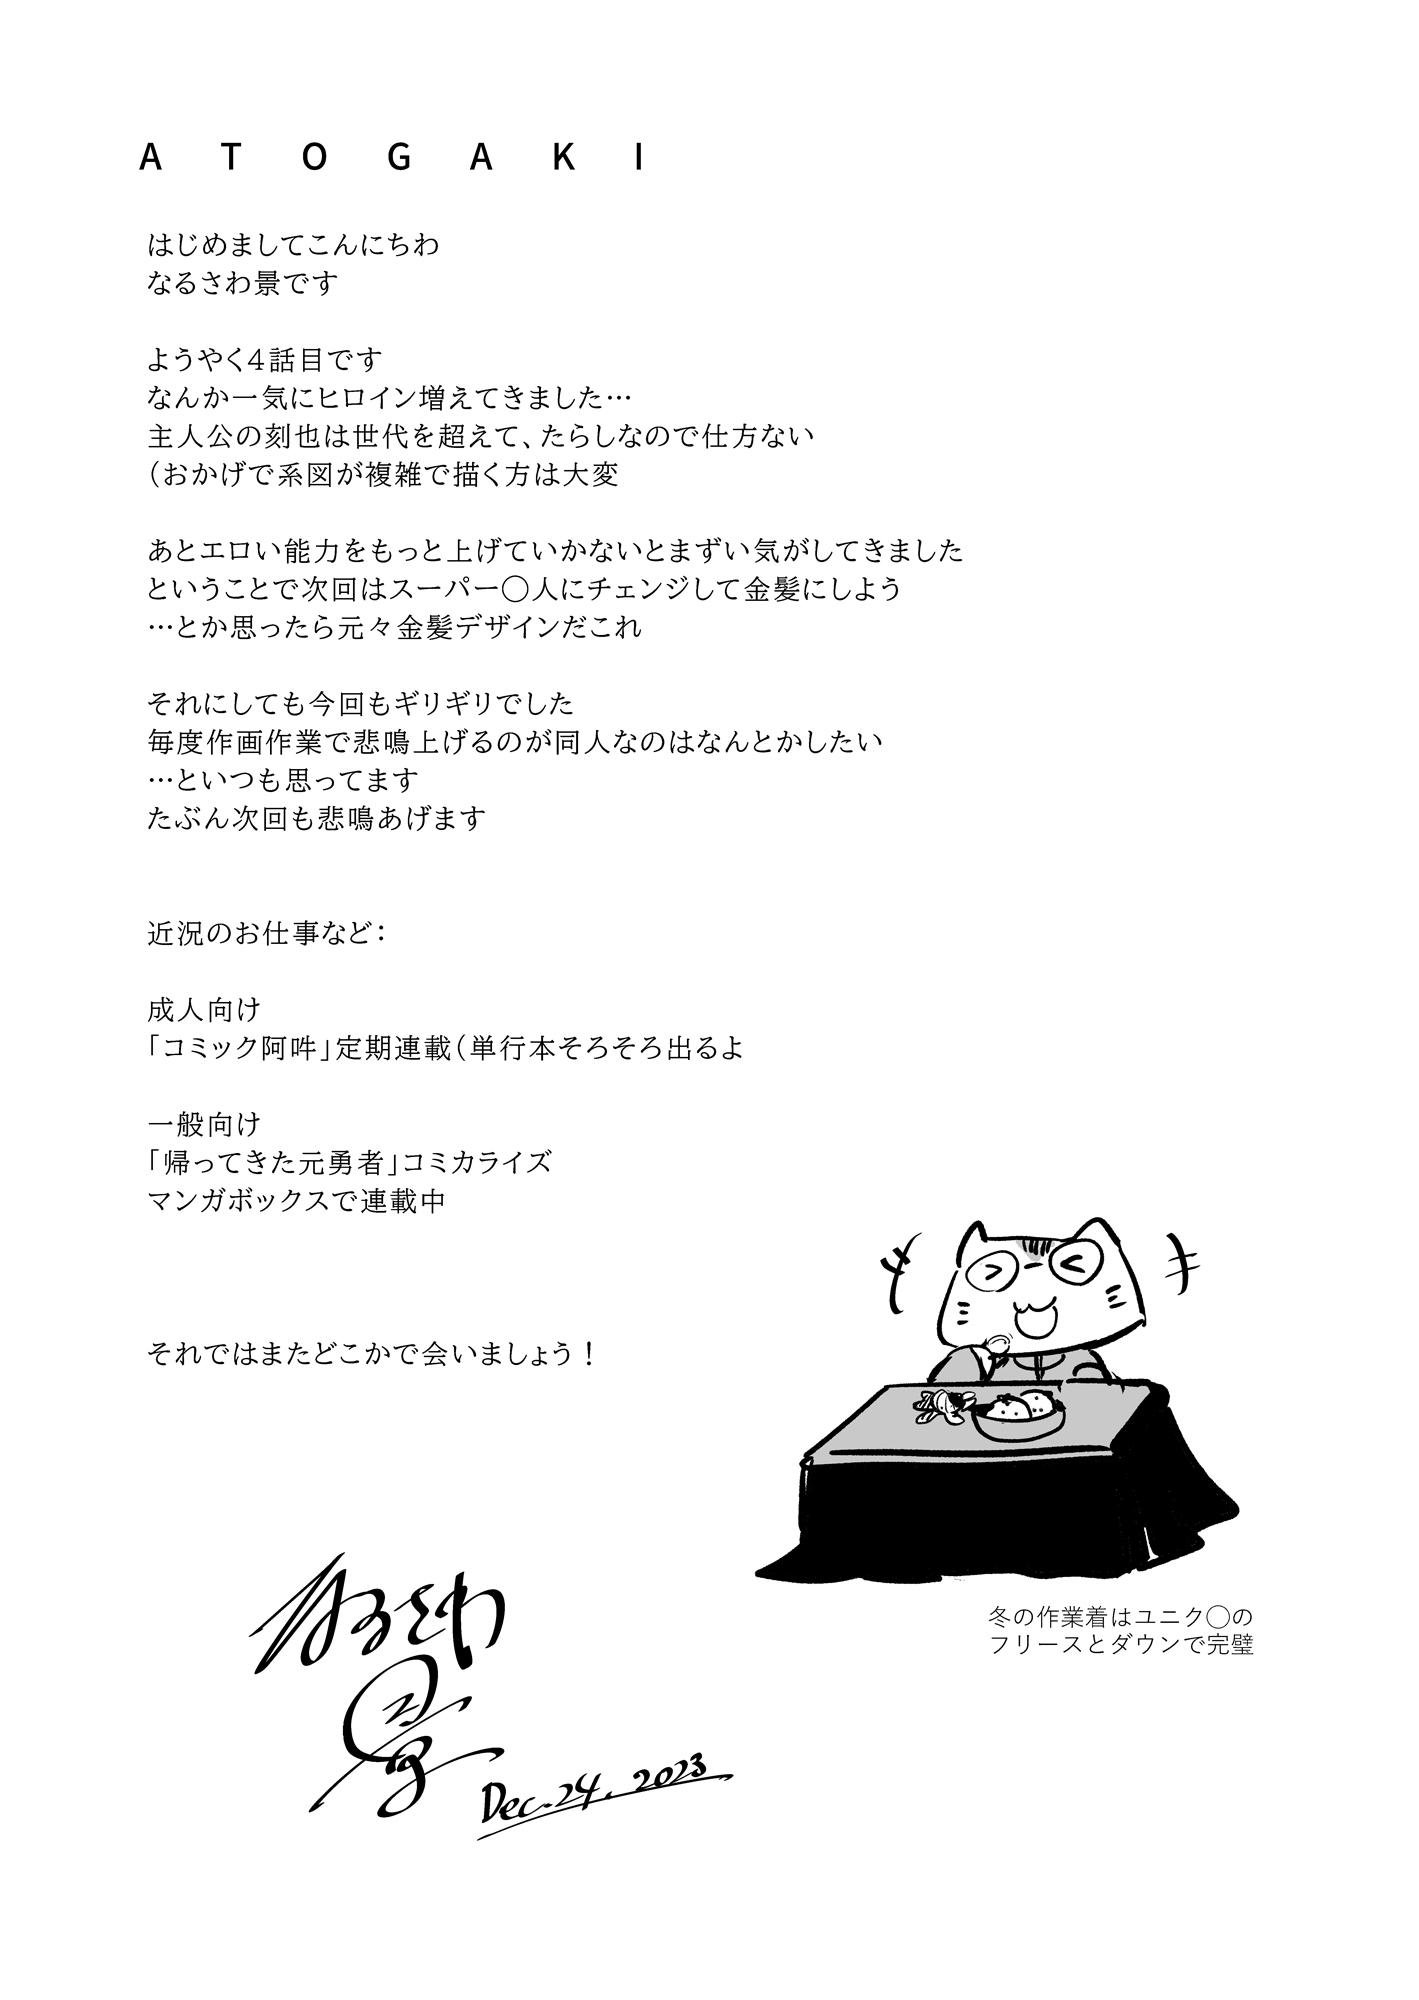 ATOGAKI
はじめましてこんにちわ
なるさわ景です
ようやく4話目です
なんか一気にヒロイン増えてきました…
主人公の刻也は世代を超えて、たらしなので仕方ない
（おかげで系図が複雑で描く方は大変
あとエロい能力をもっと上げていかないとまずい気がしてきました
ということで次回はスーパー〇人にチェンジして金髪にしよう
…とか思ったら元々金髪デザインだこれ
それにしても今回もギリギリでした
毎度作画作業で悲鳴上げるのが同人なのはなんとかしたい
…といつも思ってます
たぶん次回も悲鳴あげます
近況のお仕事など：
成人向け
「コミック阿吽」定期連載（単行本そろそろ出るよ
一般向け
「帰ってきた元勇者」コミカライズ
マンガボックスで連載中
それではまたどこかで会いましょう！
冬の作業着はユニク〇の
フリースとダウンで完璧
なるさわ
景
Dec.24.2023